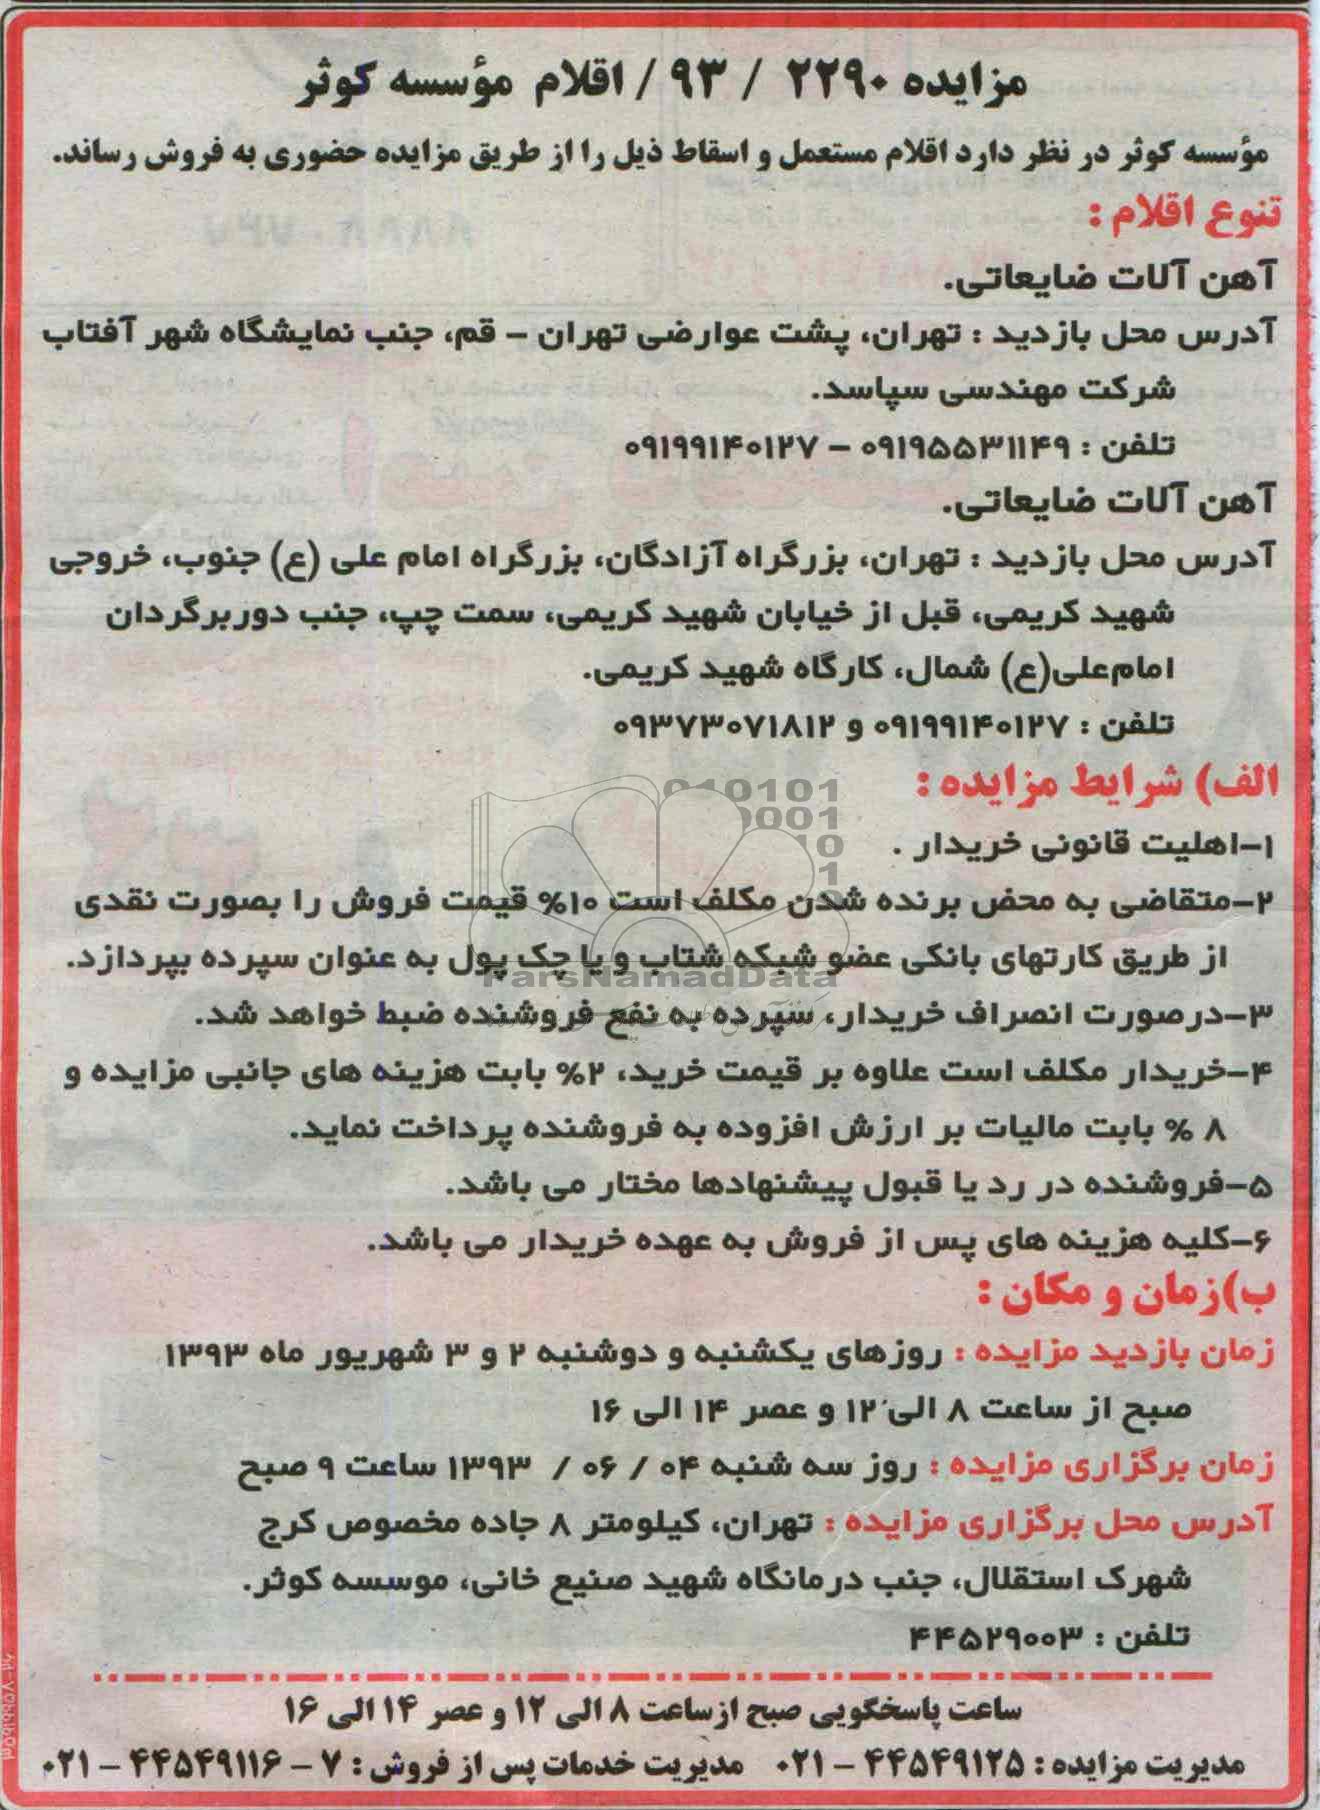 مزایده ۲۲۹۰ / ۹۳ / اقلام مؤسسه کوثر
مؤسسه کوثر در نظر دارد اقلام مستعمل و اسقاط ذیل را از طریق مزایده حضوری به فروش رساند.
تنوع اقلام :
آهن آلات ضایعاتی.
آدرس محل بازدید : تهران، پشت عوارضی تهران - قم، جنب نمایشگاه شهر آفتاب
شرکت مهندسی سپاسد.
تلفن : ۰۹۱۹۵۵۳۱۱۴۹ – ۰۹۱۹۹۱۴۰۱۲۷
آهن آلات ضایعاتی.
آدرس محل بازدید : تهران، بزرگراه آزادگان، بزرگراه امام علی (ع) جنوب، خروجی
شهید کریمی، قبل از خیابان شهید کریمی، سمت چپ، جنب دوربرگردان
امام‌علی(ع) شمال، کارگاه شهید کریمی.
تلفن : ۰۹۱۹۹۱۴۰۱۲۷ و ۰۹۳۷۳۰۷۱۸۱۲
الف) شرایط مزایده :
۱-اهلیت قانونی خریدار .
۲-متقاضی به محض برنده شدن مکلف است ۱۰% قیمت فروش را بصورت نقدی
از طریق کارتهای بانکی عضو شبکه شتاب و یا چک پول به عنوان سپرده بپردازد.
۳-درصورت انصراف خریدار، سپرده به نفع فروشنده ضبط خواهد شد.
۴-خریدار مکلف است علاوه بر قیمت خرید، ۲% بابت هزینه های جانبی مزایده و
۸ % بابت مالیات بر ارزش افزوده به فروشنده پرداخت نماید.
۵-فروشنده در رد یا قبول پیشنهادها مختار می باشد.
۶-کلیه هزینه های پس از فروش به عهده خریدار می باشد.
ب)زمان و مکان :
زمان بازدید مزایده : روزهای یکشنبه و دوشنبه ۲ و ۳ شهریور ماه ۱۳۹۳
صبح از ساعت ۸ الی ۱۲ و عصر ۱۴ الی ۱۶
زمان برگزاری مزایده : روز سه شنبه ۰۴ / ۰۶ / ۱۳۹۳ ساعت ۹ صبح
آدرس محل برگزاری مزایده : تهران، کیلومتر ۸ جاده مخصوص کرج
شهرک استقلال، جنب درمانگاه شهید صنیع خانی، موسسه کوثر.
تلفن : ۴۴۵۲۹۰۰۳
ساعت پاسخگویی صبح از ساعت ۸ الی ۱۲ و عصر ۱۴ الی ۱۶
مدیریت مزایده : ۴۴۵۴۹۱۲۵ – ۰۲۱ مدیریت خدمات پس از فروش : ۷ – ۴۴۵۴۹۱۱۶ – ۰۲۱
ParsNamadData